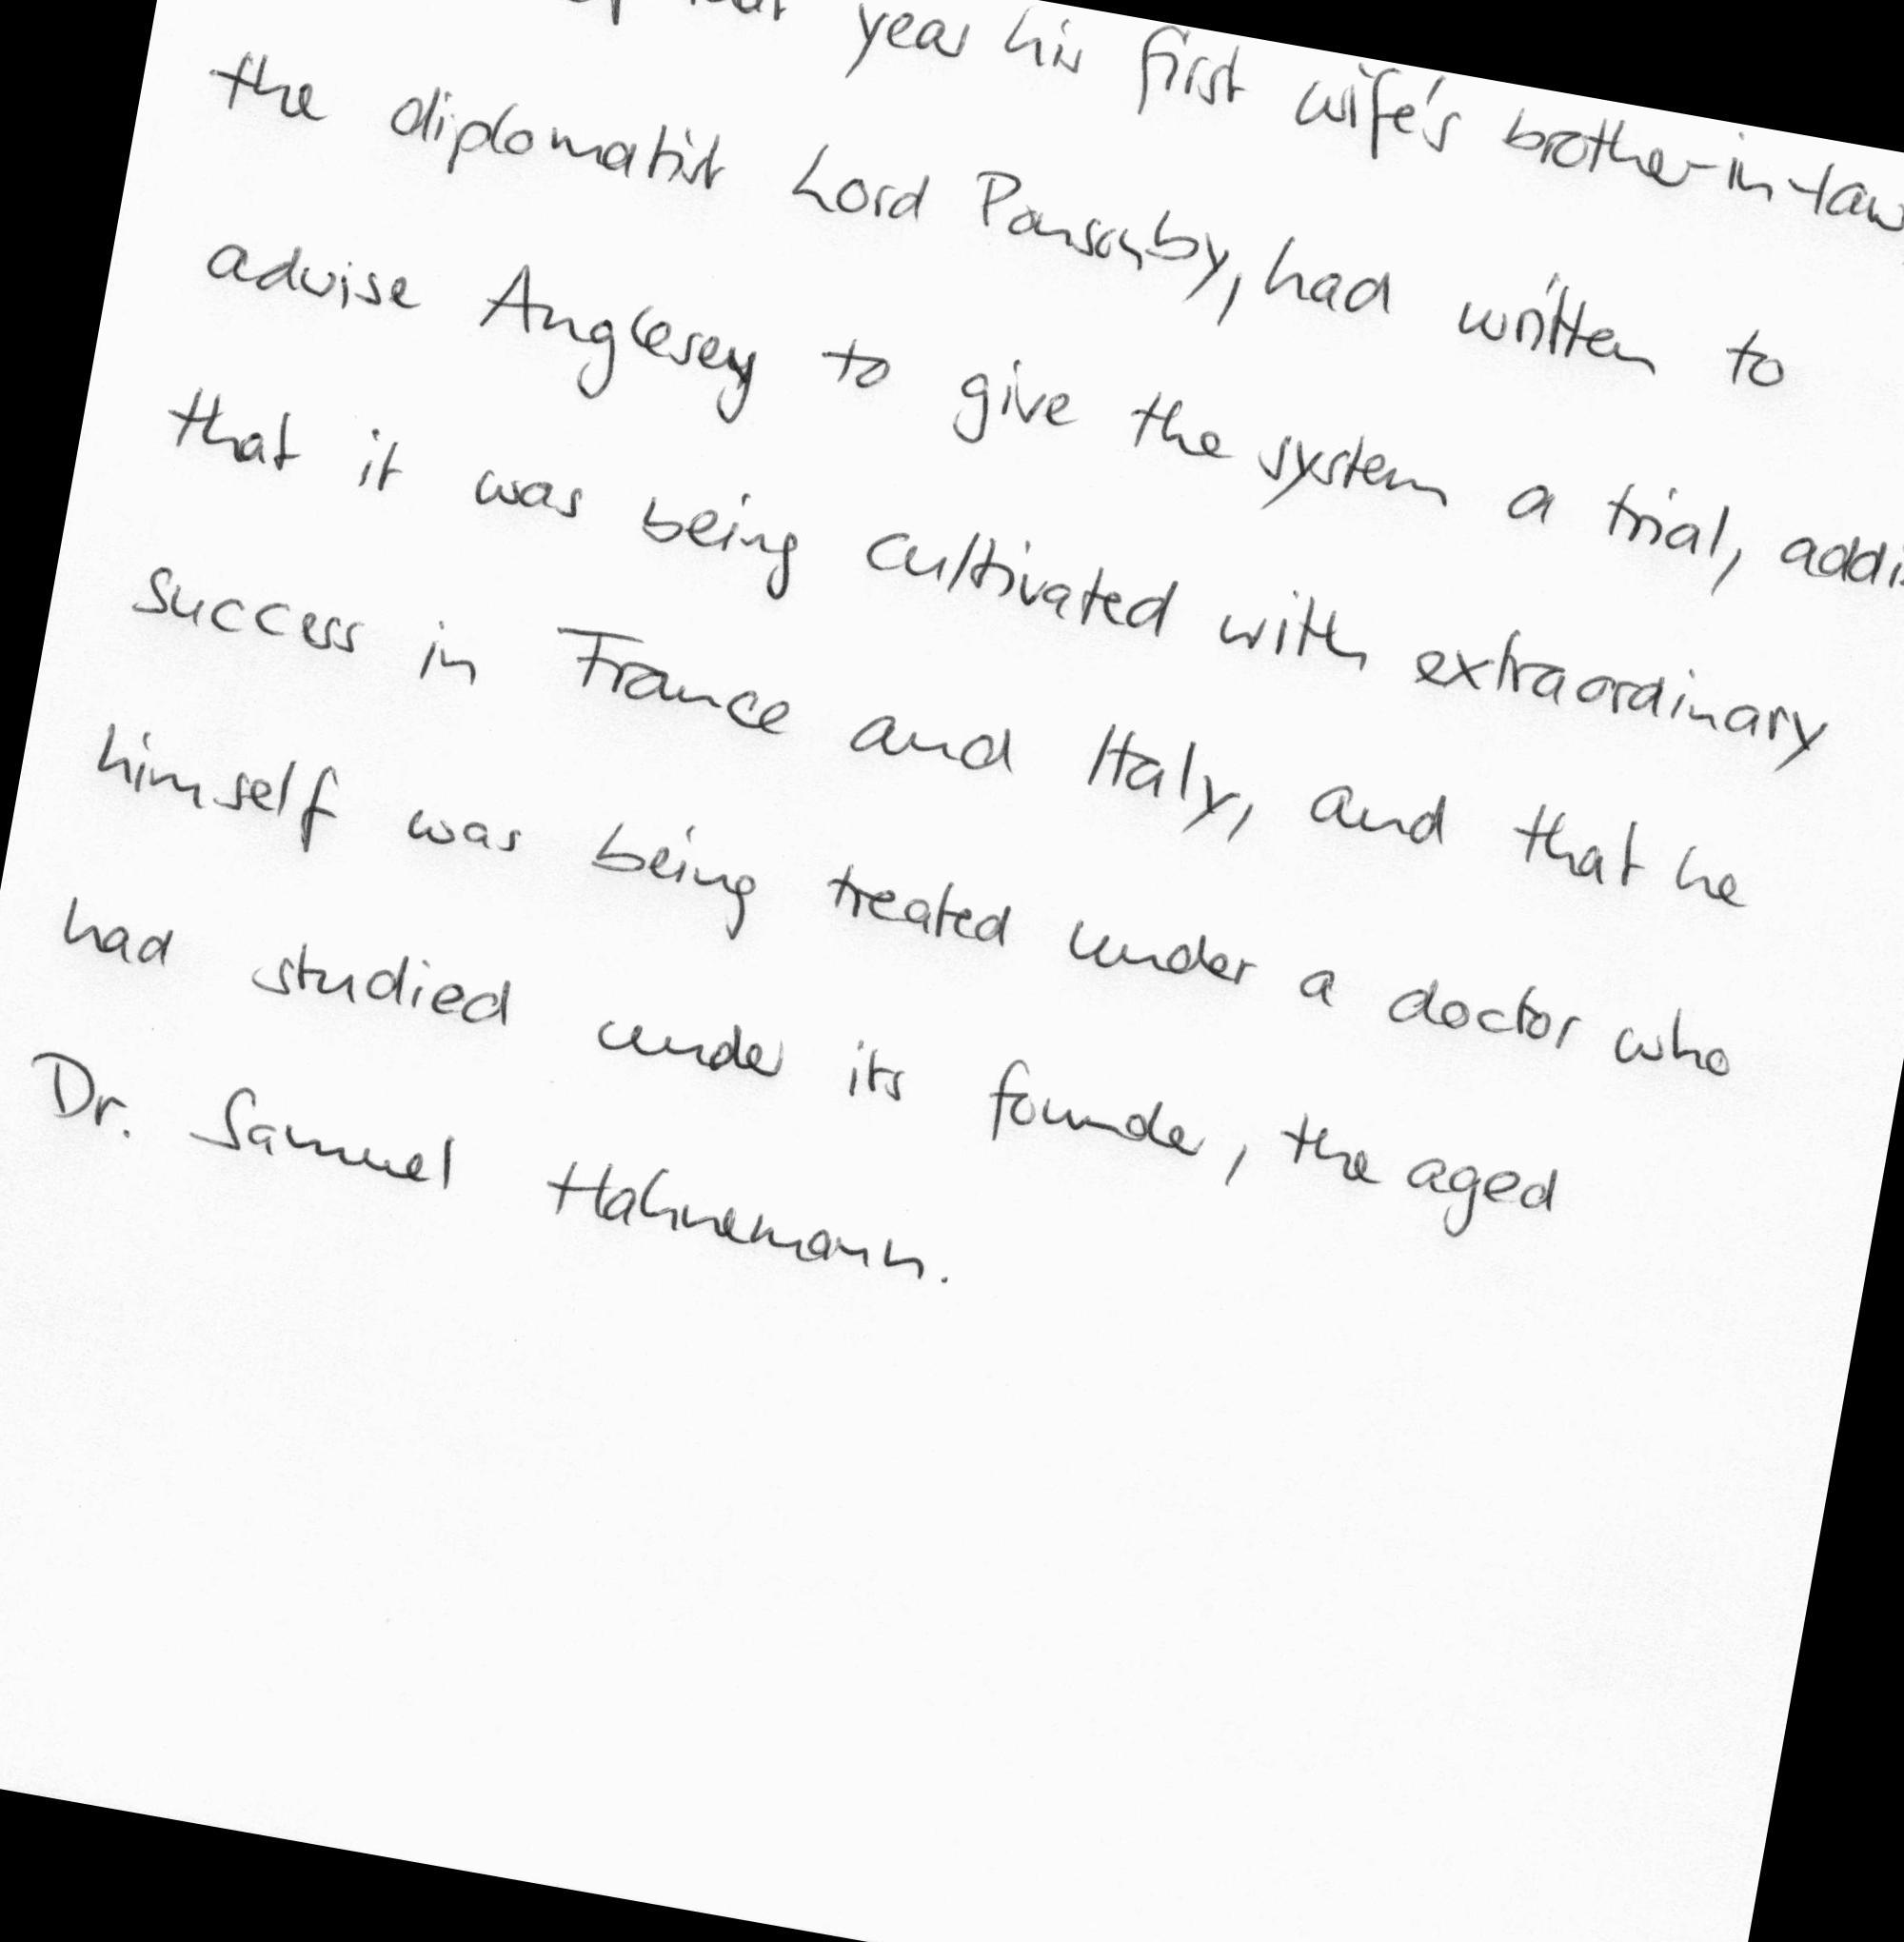 year his first wife's brother-in-law,
the diplomatist Lord Ponsonby, had written to
advise Anglesey to give the system a trial,
that it was being cultivated with extraordinary
success in France and Italy, and that he
himself was being treated under a doctor who
had studied under its founder, the aged
Dr. Samuel Hahnemann.